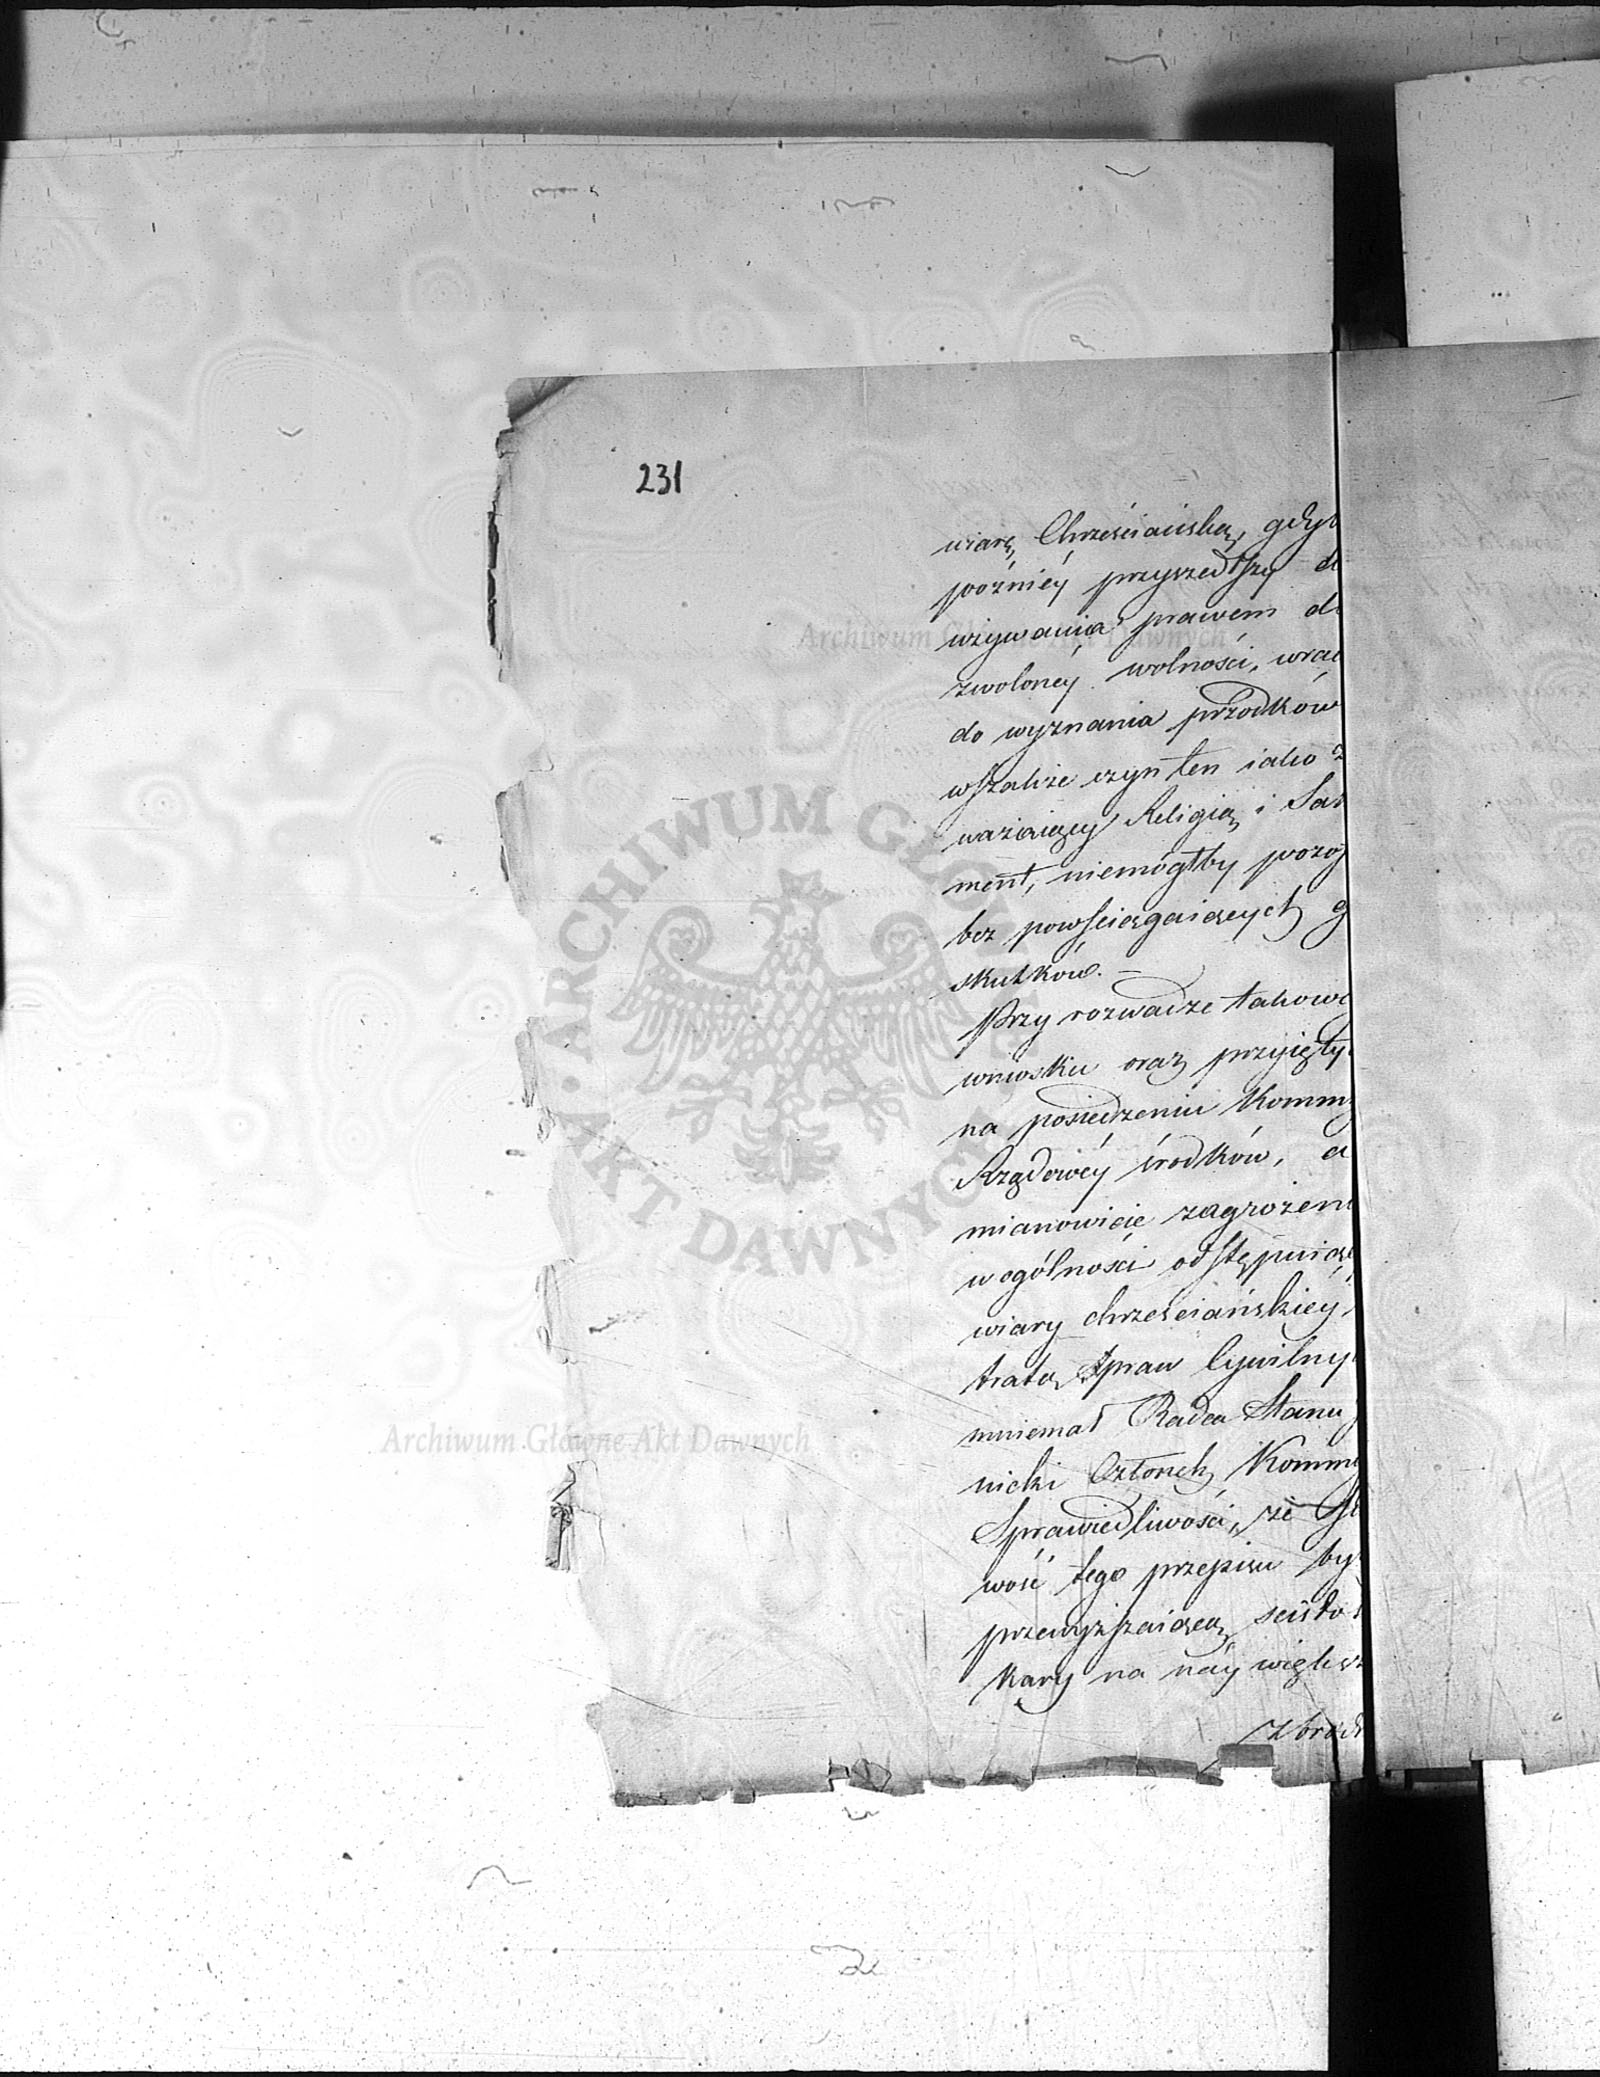 231
wiarę Chrześciańską, gdyb
poźniéy przyszedłszy d
używania prawem d
zwoloney wolności, wrac
do wyznania przodków
wszakże czyn ten iako z
ważaiący Religią i Sak
ment, niemógłby pozo
bez powściągaiących g
skutków. —
Przy rozwadze takowe
wniosku oraz przyięty
na posiedzeniu Kommi
Rządowéy środków, a
mianowicie zagrożeni
w ogólności odstępuiąc
wiary chrześciańskiéy,
tratą praw Cywilny
mniemał Radca Stanu
nicki Członek Kommi
Sprawiedliwości, że
wość tego przepisu by
przewyższaiącą ścisło
kary na náywiększ
zbrod
Archiwum Główne Akt Dawnych
ARCHIWUM GŁÓWNE · AKT DAWNYCH
Archiwum Główne Akt Dawnych